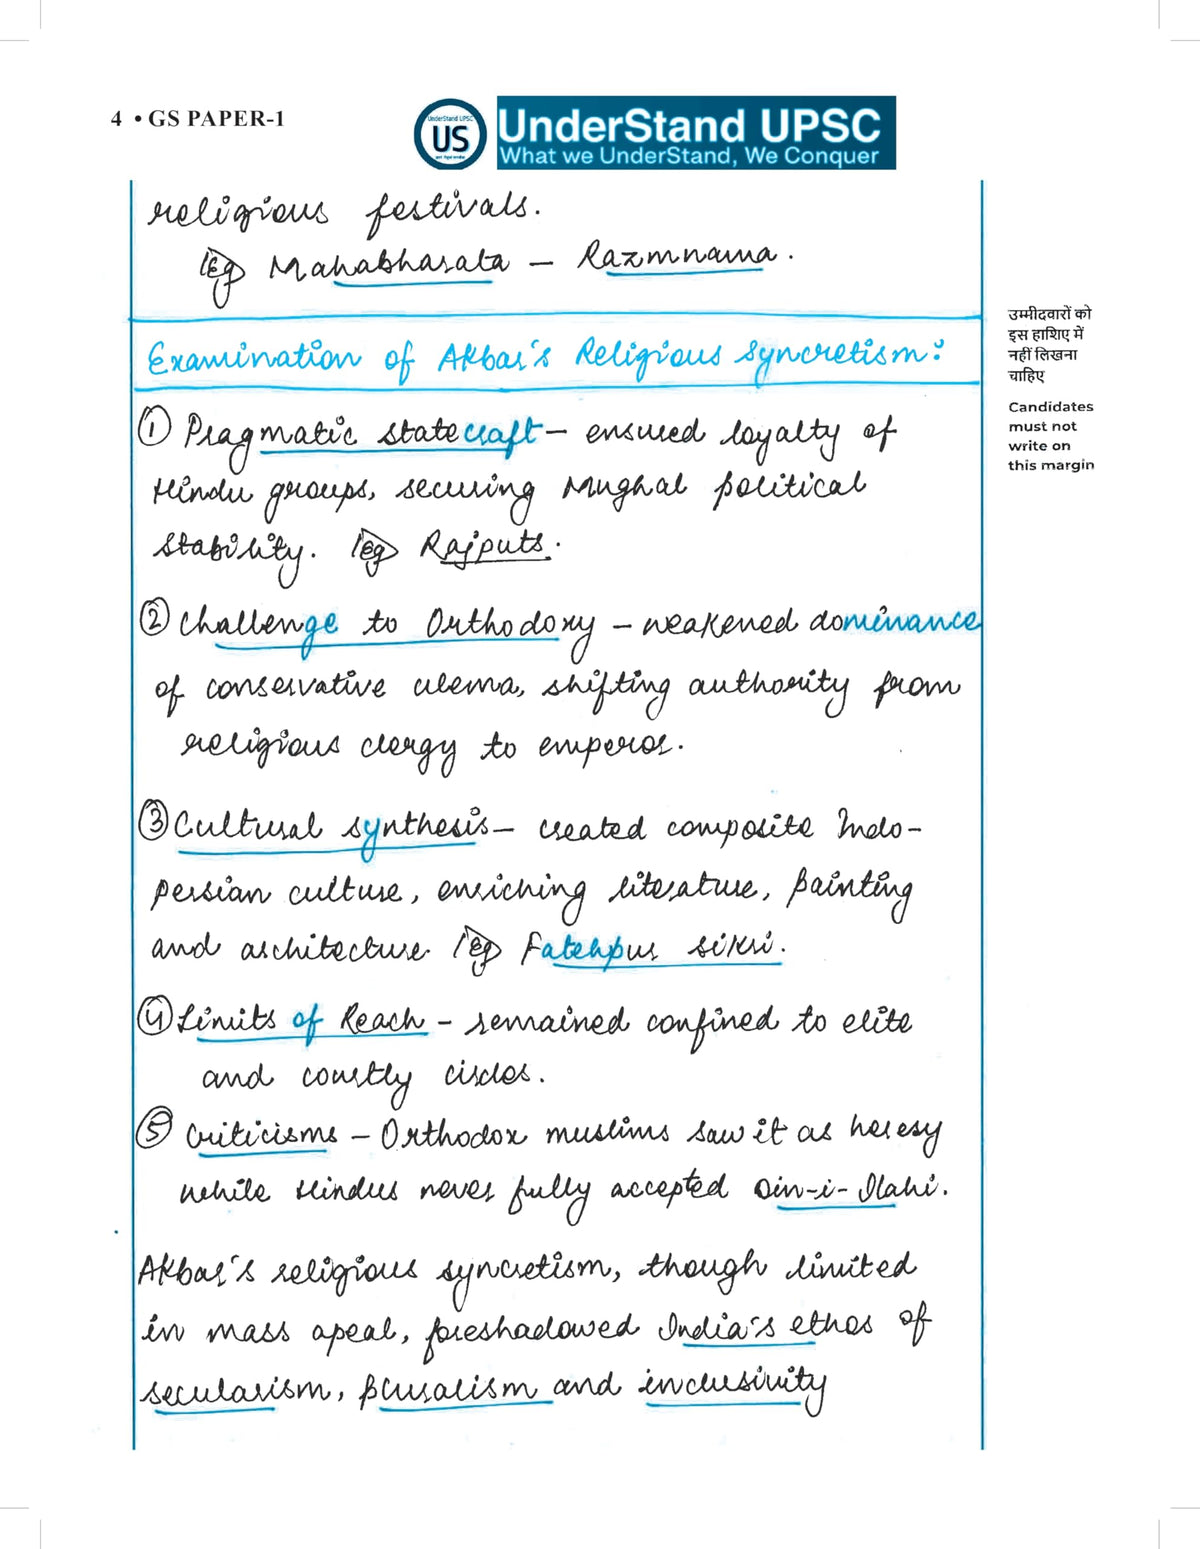 4 • GS PAPER-1
UnderStand UPSC
US
UnderStand UPSC
What we UnderStand, We Conquer
religious festivals.
eg Mahabharata – Razmnama.
उम्मीदवारों को
इस हाशिए में
नहीं लिखना
चाहिए
Candidates
must not
write on
this margin
Examination of Akbar's Religious Syncretism:
① Pragmatic statecraft – ensured loyalty of
Hindu groups, securing Mughal political
stability. eg Rajputs.
② Challenge to Orthodoxy – weakened dominance
of conservative ulema, shifting authority from
religious clergy to emperor.
③ Cultural synthesis – created composite Indo-
Persian culture, enriching literature, painting
and architecture. eg Fatehpur Sikri.
④ Limits of Reach – remained confined to elite
and courtly circles.
⑤ Criticisms – Orthodox muslims saw it as heresy
while Hindus never fully accepted Din-i-Ilahi.
Akbar's religious syncretism, though limited
in mass apeal, foreshadowed India's ethos of
secularism, pluralism and inclusivity